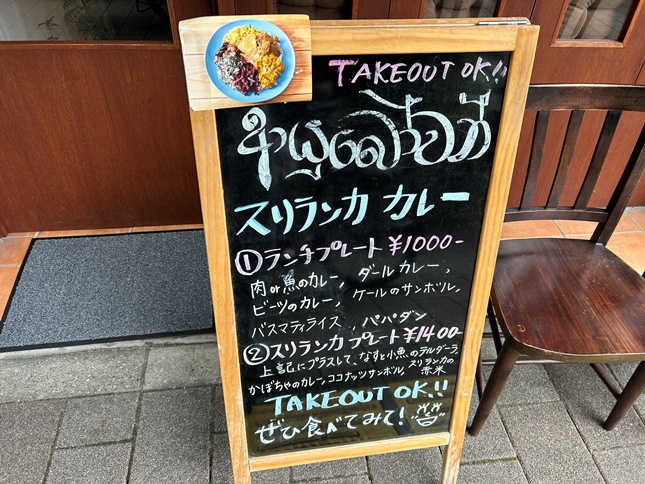 TAKEOUT OK!!
スリランカ カレー
① ランチプレート ¥1000-
肉or魚のカレー, ダールカレー,
ビーツのカレー, ケールのサンボル,
バスマティライス, パパダン
② スリランカプレート ¥1400-
上記にプラスして、なすと小魚のテルダーラ,
かぼちゃのカレー,ココナッツサンボル, スリランカの赤米
TAKEOUT OK!!
ぜひ食べてみて!